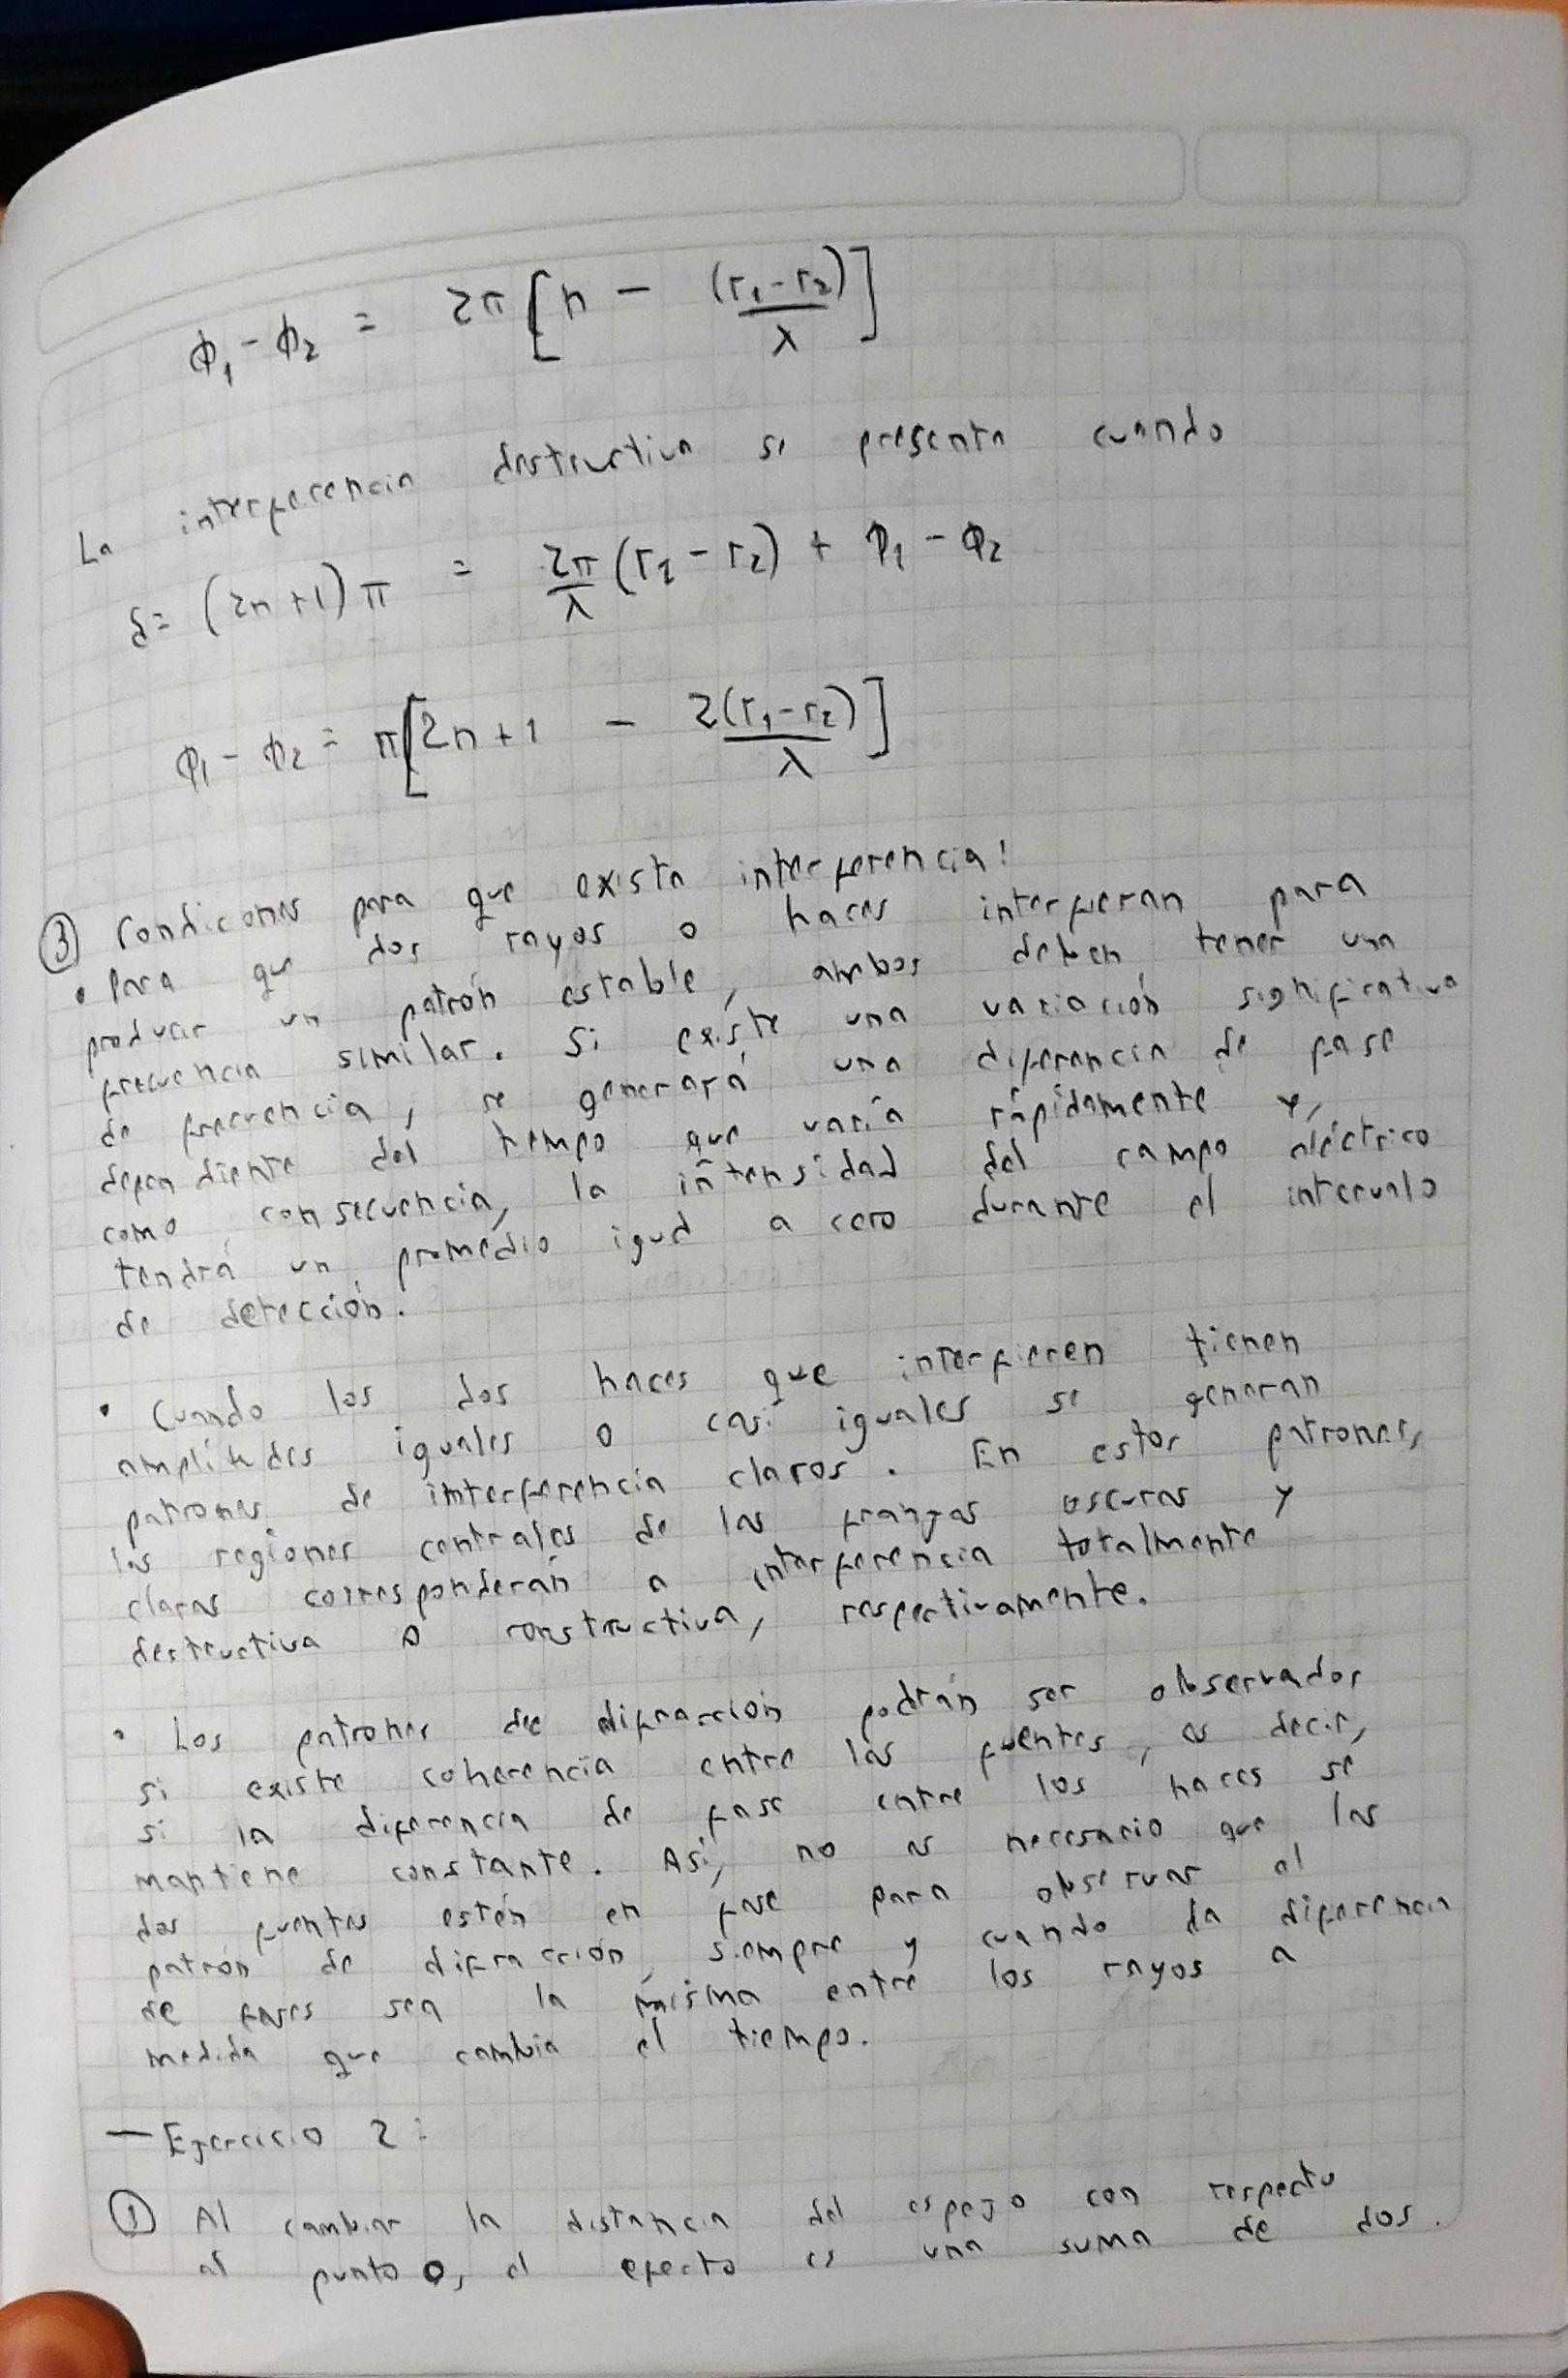 ϕ₁ - ϕ₂ = 2π [n - (r₁-r₂)/λ]
La interferencia destructiva se presenta cuando
δ = (2n+1)π = 2π/λ (r₁ - r₂) + ϕ₁ - ϕ₂
ϕ₁ - ϕ₂ = π[2n+1 - 2(r₁-r₂)/λ]
③ Condiciones para que exista interferencia:
• Para que dos rayos o haces interfieran para
producir un patrón estable, ambos deben tener una
frecuencia similar. Si existe una variación significativa
de frecuencia, se generará una diferencia de fase
dependiente del tiempo que varía rápidamente y,
como consecuencia, la intensidad del campo eléctrico
tendrá un promedio igual a cero durante el intervalo
de detección.
• Cuando los dos haces que interfieren tienen
amplitudes iguales o casi iguales se generan
patrones de interferencia claros. En estos patrones,
las regiones centrales de las franjas oscuras y
claras corresponderán a interferencia totalmente
destructiva o constructiva, respectivamente.
• Los patrones de difracción podrán ser observados
si existe coherencia entre las fuentes, es decir,
si la diferencia de fase entre los haces se
mantiene constante. Así, no es necesario que las
dos fuentes estén en fase para observar el
patrón de difracción, siempre y cuando la diferencia
de fases sea la misma entre los rayos a
medida que cambia el tiempo.
— Ejercicio 2:
① Al cambiar la distancia del espejo con respecto
al punto O, el efecto es una suma de dos.